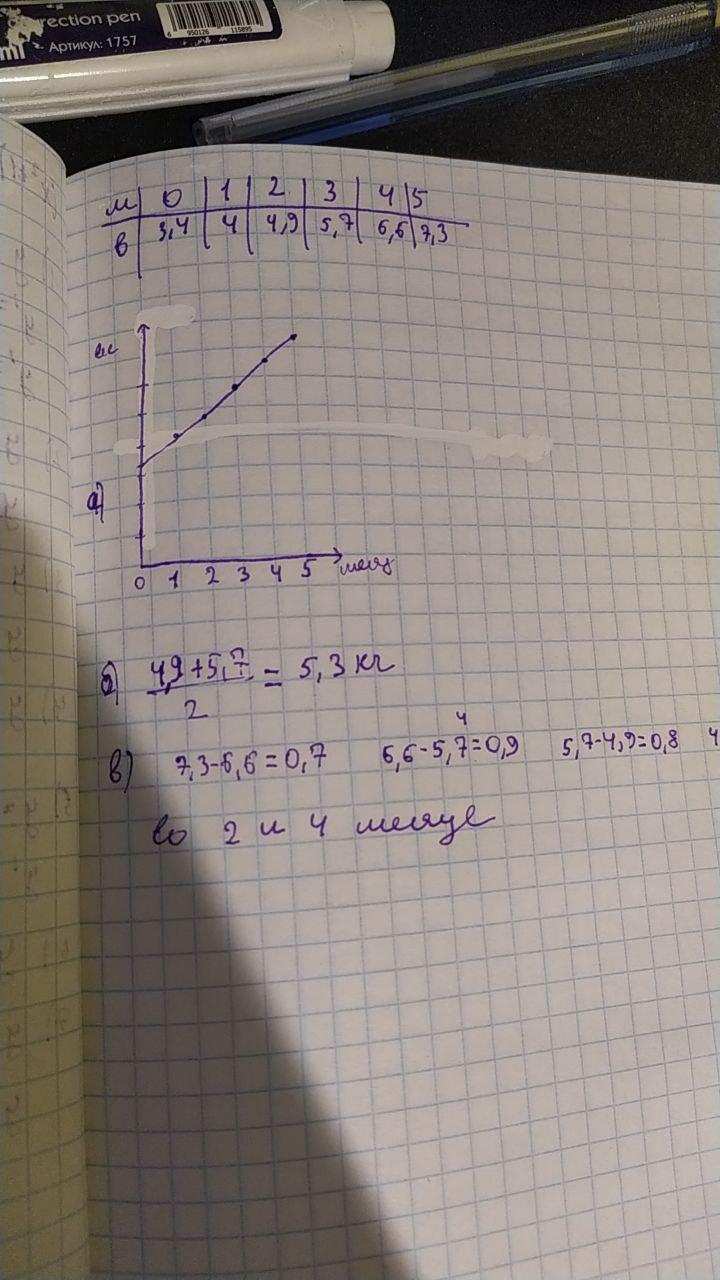 rection pen
Артикул: 1757
6 950126 115895
м 0 1 2 3 4 5
в 3,4 4 4,9 5,7 6,6 7,3
а)
0 1 2 3 4 5 месяц
б) 4,9+5,7 / 2 = 5,3 кг
4
в) 7,3-6,6=0,7 6,6-5,7=0,9 5,7-4,9=0,8 4
во 2 и 4 месяце